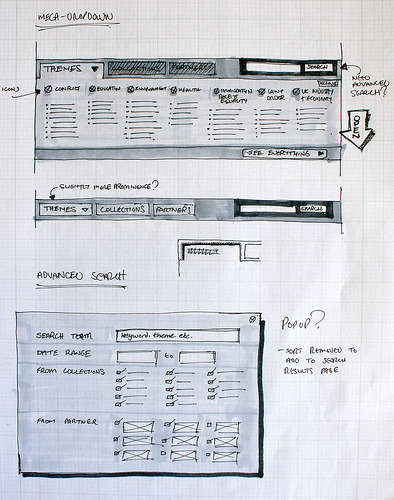 MEGA-DROPDOWN
THEMES
PARTNERS
SEARCH
ICONS
CONFLICT
EDUCATION
ENVIRONMENT
HEALTH
IMMIGRATION
RACE &
EQUALITY
LAW &
ORDER
UK MONEY
& ECONOMY
NEED
ADVANCED
SEARCH?
SEE EVERYTHING
SLIGHTLY MORE PROMINENCE?
THEMES
COLLECTIONS
PARTNERS
SEARCH
ADVANCED SEARCH
SEARCH TERM
Keyword, theme etc.
DATE RANGE
to
FROM COLLECTIONS
FROM PARTNER
POPUP?
- SORT REMOVED TO
ADD TO SEARCH
RESULTS PAGE